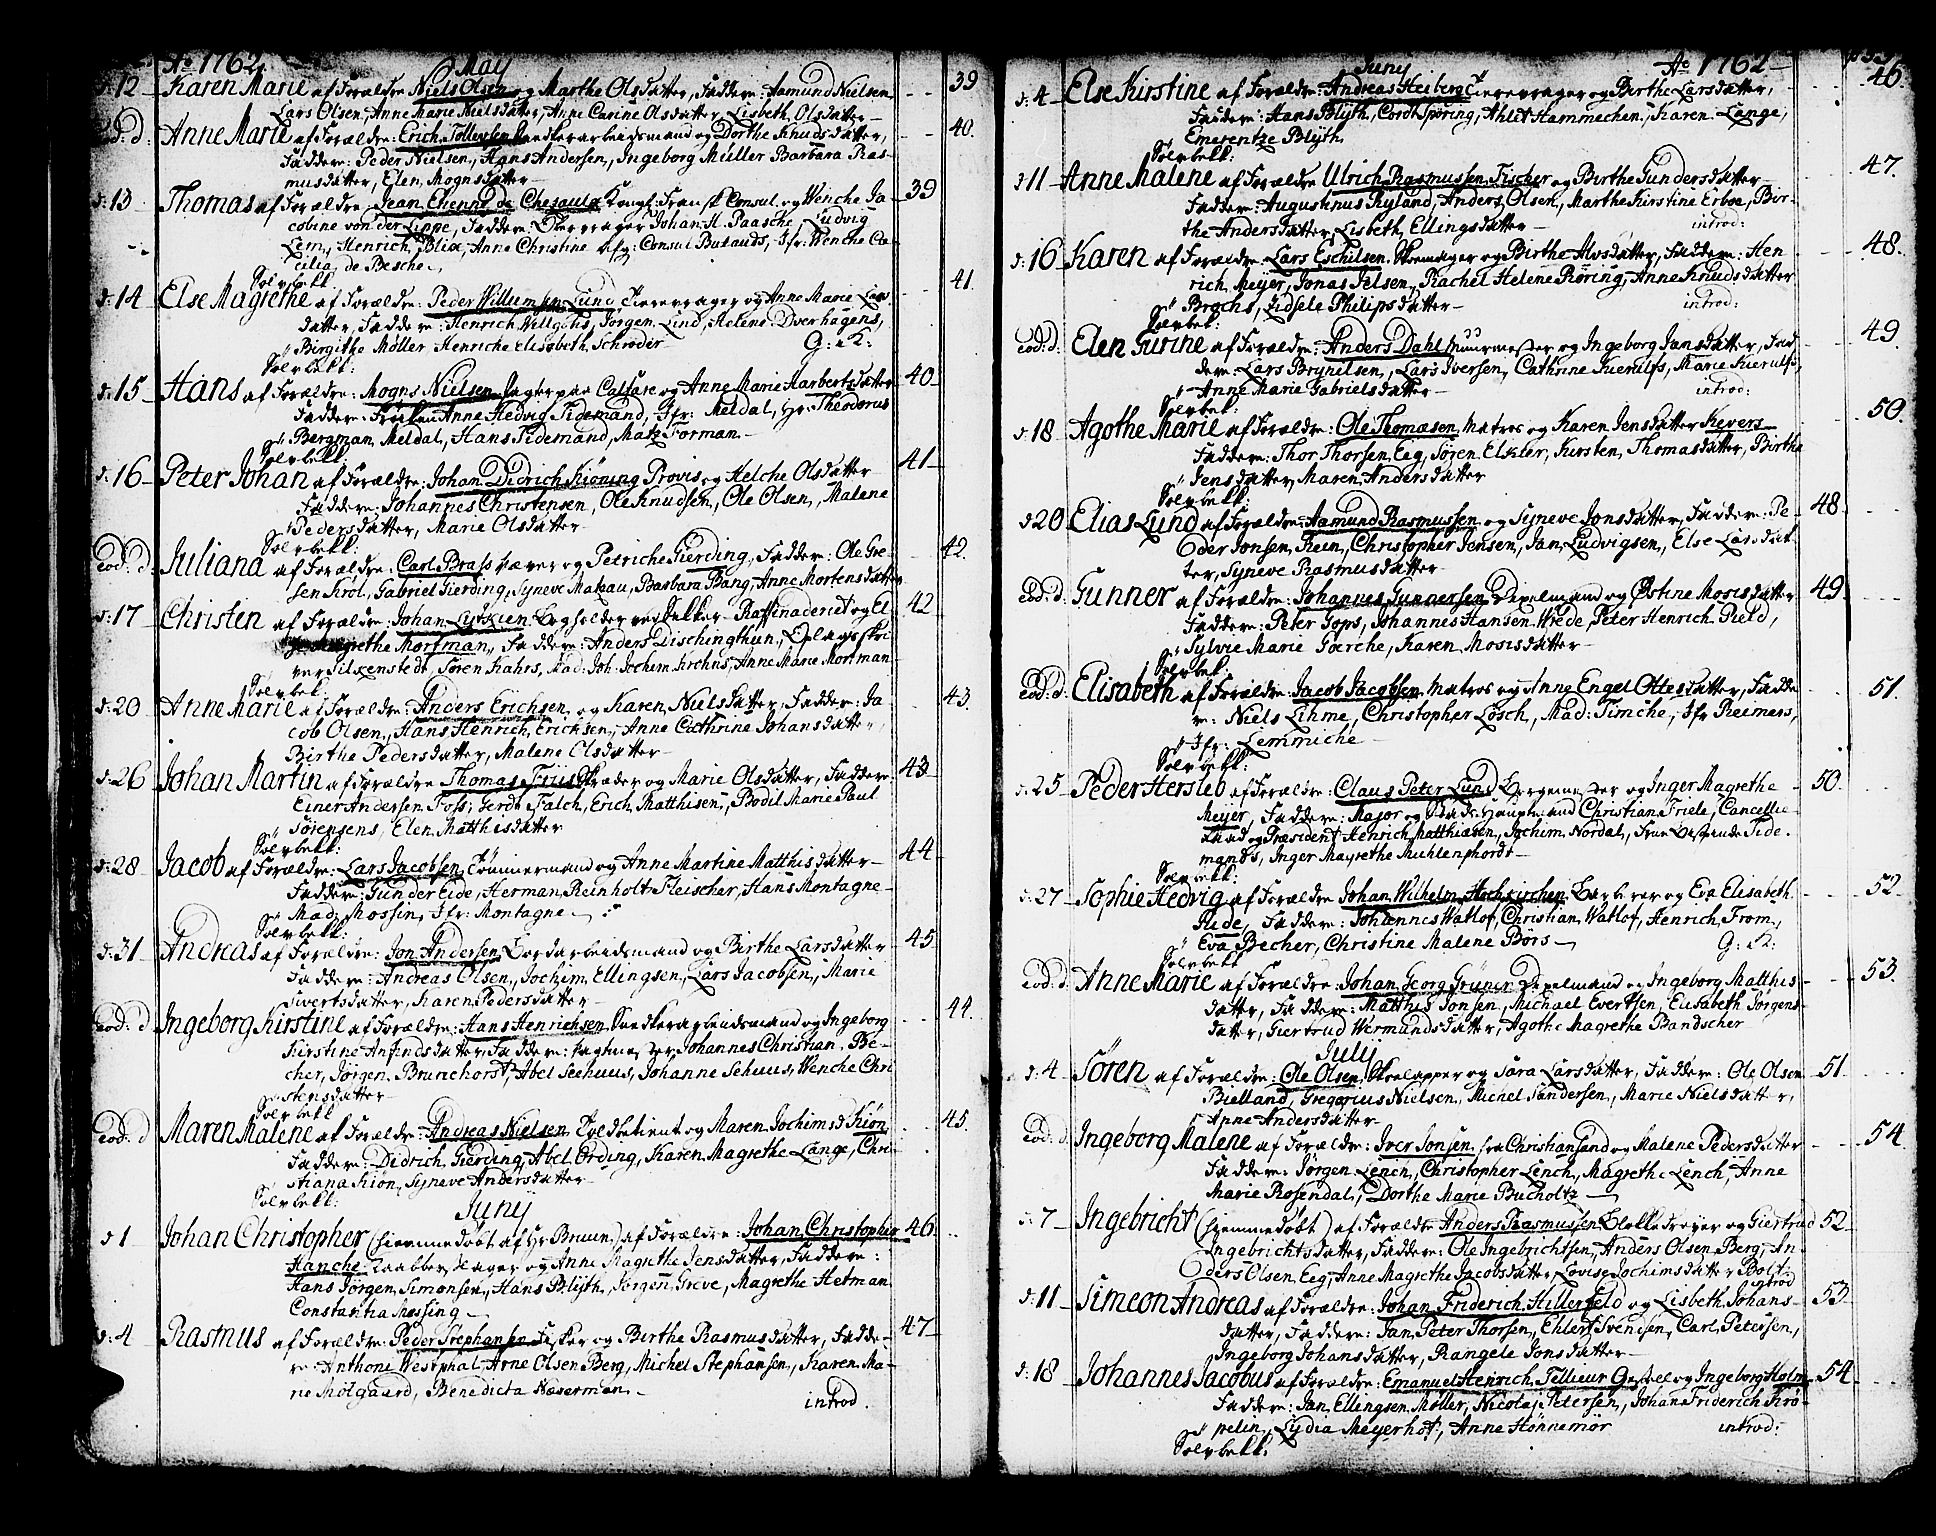 Ao 1762. May
d: 12 Karen Marie af Forældre Niels Olsen og Marthe Olsdatter, Faddere: Aamund Nielsen 39
Lars Olsen, Anne Marie Nielsdatter, Anne Carine Olsdatter, Lisbeth Olsdatter
Eod: d: Anne Marie af Forældre: Erich Tollevsen Sandkerarbeidsmand og Dorthe Knudsdatter, 40.
Faddere: Peder Nielsen, Hans Andersen, Ingeborg Müller Barbara Ras-
musdatter, Elen Mognsdatter
d: 13 Thomas af Forældre: Jean Etienne de Chesaulx Kongl: Fransk Consul og Wenche Ja- 39
cobine von der Lippe, Faddere: Johan H. Paasche, Ludvig
Lem, Henrich Blix, Anne Christine Consul Butauds, Jfr: Wenche Ca-
cilia de Besche
Solvbekl.
d: 14 Else Magrethe af Forældre: Peder Willumsen Lund og Anne Marie Lars 41.
datter, Faddere: Henrich Willgohs, Jørgen Lind, Helene Dverhagens,
Birgithe Møller Henriche Elisabeth Schrøder G: K:
Solvbekl:
d: 15 Hans af Forældre: Mogns Nielsen og Anne Marie Harbertsdatter 40
Faddere: Frøken Anne Hedvig Tidemand, Jfr: Meldal, Hr: Theodorus
Bergman, Meldal, Hans Tidemand, Matz Forman
Solvbekl:
d: 16 Peter Johan af Forældre: Johan Didrich Kiøning Provis og Helche Olsdatter 41
Faddere: Johannes Christensen, Ole Knudsen, Ole Olsen, Malene
Pedersdatter, Marie Olsdatter
Solvbekl:
Eod: d: Juliana af Forældre: Carl Brass Væver og Petriche Gierding, Faddere: Ole Gre- 42.
sen Krol, Gabriel Gierding, Syneve Makau, Barbara Bang, Anne Mortensdatter
d: 17 Christen af Forældre: Johan Lydkien Bogholder ved Sukker Raffinaderiet og El 42
Magrethe Mortman, Faddere: Anders Dischingthun, Oplagsskri
ver Silxenstedt, Søren Kahrs, Mad: Joh: Jochim Krohns, Anne Marie Mortman
Solvbekl:
d: 20 Anne Marie af Forældre: Anders Erichsen og Karen Nielsdatter, Faddere: Ja 43.
cob Olsen, Hans Henrich Erichsen, Anne Cathrine Johansdatter,
Birthe Pedersdatter, Malene Olsdatter
d: 26 Johan Martin af Forældre Thomas Friis Skræder og Marie Olsdatter, Faddere 43
Einer Andersen Foss, Gerdt Falch, Erich Matthisen, Bodil Marie Paul
Sørensens, Elen Matthisdatter
Solvbekl:
d: 28 Jacob af Forældre: Lars Jacobsen Tømmermand og Anne Martine Matthisdatter 44
Faddere: Gunder Eide, Herman Reinholt Fleischer, Hans Montagne
Mad: Mossin, Jfr: Montagne
Solvbekl:
d: 31 Andreas af Forældre: Jon Andersen Bordarbeidsmand og Birthe Larsdatter 45
Faddere: Andreas Olsen, Jochim Ellingsen, Lars Jacobsen, Marie
Sivertsdatter, Karen Pedersdatter
Eod: d Ingeborg Kirstine af Forældre: Hans Henrichsen Sandkerarbeidsmand og Ingeborg 44.
Kirstine Anfindsdatter, Faddere: Vagtmester Johannes Christian Be-
cher, Jørgen Brunchorst, Abel Seehuus, Johanne Sehuus, Wenche Chri
stensdatter
Solvbekl
Eod: d Maren Malene af Forældre: Andreas Nielsen Toldbetient og Maren Jochimsd Kiøn 45.
Faddere: Didrich Gierding, Abel Erding, Karen Magrethe Lange, Chri-
stiana Kiøn, Syneve Andersdatter
Solvbekl: Junÿ
d 1 Johan Christopher (hiemmedøbt af Hr Bruun) af Forældre: Johan Christopher 46
Hanche Kaabberslager og Anne Magrethe Jensdatter, Faddere:
Hans Jørgen Simonsen, Hans Blÿth, Jørgen Greve, Magrethe Hetman
Constantia Messing
d: 4 Rasmus af Forældre: Peder Stephansen Fisker og Birthe Rasmusdatter, Fadde- 47
re: Anthoni Westphal, Arne Olsen Berg, Michel Stephansen, Karen Ma-
rie Molgaard, Benedicta Næserman
introd.
Junÿ Ao 1762
d: 4 Else Kirstine af Forældre: Andreas Heiberg og Birthe Larsdatter, 46.
Faddere: Hans Blÿth, Cordt Spöring, Ahlet Hammechen, Karen Lange,
Emerentze Blÿth
Solvbekl:
d 11 Anne Malene af Forældre Ulrich Rasmussen Fischer og Birthe Gundersdatter 47.
Faddere: Augustinus Ryland, Anders Olsen, Marthe Kirstine Erboe, Bir-
the Andersdatter, Lisbeth Ellingsdatter introd:
d: 16 Karen af Forældre: Lars Eschilsen Skomager og Birthe Alvsdatter, Faddere: Hen 48.
rich Meÿer, Jonas Jelsen, Rachel Helene Røring, Anne Knudsdatter
Brochs, Zidsele Philipsdatter introd:
Solvbekl:
eod: d: Elen Gurine af Forældre: Anders Dahl Muurmester og Ingeborg Jansdatter, Fad 49.
dere: Lars Brynilsen, Lars Iversen, Cathrine Fuerulfs, Marie Fuerulfs,
Anne Marie Gabrielsdatter introd:
Solvbekl:
d: 18 Agothe Marie af Forældre: Ole Thomasen Matros og Karen Jensdatter Kevers 50.
Faddere: Thor Thorsen Eeg, Søren Elster, Kirsten Thomasdatter, Birthe
Jensdatter, Maren Andersdatter
Solvbekl:
d 20 Elias Lund af Forældre: Aamund Rasmussen og Syneve Jonsdatter, Faddere: Pe- 48
der Jonsen Fiein, Christopher Jensen, Jan Ludvigsen, Else Larsdat
ter, Syneve Rasmusdatter
eod: d: Gunner af Forældre: Johannes Gunnersen Dexelmand og Østine Mosisdatter 49
Faddere: Peter Tops, Johannes Hansen Wrede, Peter Henrich Pield,
Sylvie Marie Garche, Karen Mosisdatter
Solvbekl:
eod: d: Elisabeth af Forældre: Jacob Jacobsen Matros og Anne Engel Ottesdatter, Fadde 51.
re: Niels Lihme, Christopher Losch, Mad: Timche, Jfr Reimers,
Jfr: Lemmiche
Solvbekl:
d: 25 Peder Hersleb af Forældre: Claus Peter Lund Borgemester og Inger Magrethe 50.
Meÿer, Faddere: Major og Stads-Hauptmand Christian Friele, Cancellie
raad og Præsident Henrich Matthiasen, Jochim Nordal, Frue Tide-
mands, Inger Magrethe Muhlenphordt
Solvbekl:
d: 27 Sophie Hedvig af Forældre Johan Wilhelm Hochkirchen Barberer og Eva Elisabeth 52
Rude, Faddere: Johannes Watlof, Christian Watlof, Henrich From,
Eva Becher, Christine Malene Børs G: K:
Solvbekl
eod: d: Anne Marie af Forældre: Johan Georg Grüner Dexelmand og Ingeborg Matthis 53.
datter, Faddere: Matthis Jonsen, Michael Evertsen, Elisabeth Jørgens
datter, Giertrud Wermundsdatter, Agothe Magrethe Bandscher
Julÿ
d: 4 Søren af Forældre: Ole Olsen Skolapper og Sara Larsdatter, Faddere: Ole Olsen 51
Bielland, Gregorius Nielsen, Michel Sandersen, Marie Nielsdatter,
Anne Andersdatter
eod: d. Ingeborg Malene af Forældre: Iver Jonsen fra Christiansand og Malene Pedersdatter 54
Faddere: Jørgen Lench, Christopher Lench, Magrethe Lench, Anne
Marie Rosendal, Dorthe Marie Bucholtz
d: 7 Ingebricht (hiemmedøbt) af Forældre Anders Rasmussen Blokkedreyer og Giertrud 52
Ingebrichtsdatter, Faddere: Ole Ingebrichtsen, Anders Olsen Berg, An
ders Olsen Eeg, Anne Magrethe Jacobsdatter, Lovise Jochimsdatter Bolt
introd
d: 11 Simeon Andreas af Forældre: Johan Friderich Hillerfeld og Lisbeth Johans- 53
datter, Faddere: Jan Peter Thorsen, Ehlert Svendsen, Carl Petersen,
Ingeborg Johansdatter, Rangele Jonsdatter
d: 18 Johannes Jacobus af Forældre: Emanuel Henrich Tellieur Gestel og Ingeborg Holm 54
Faddere: Jan Ellingsen Møller, Nicolaj Petersen, Johan Friderich Krø-
pelin, Lydia Meyerhof, Anne Hønnemør introd:
Solvbekl: